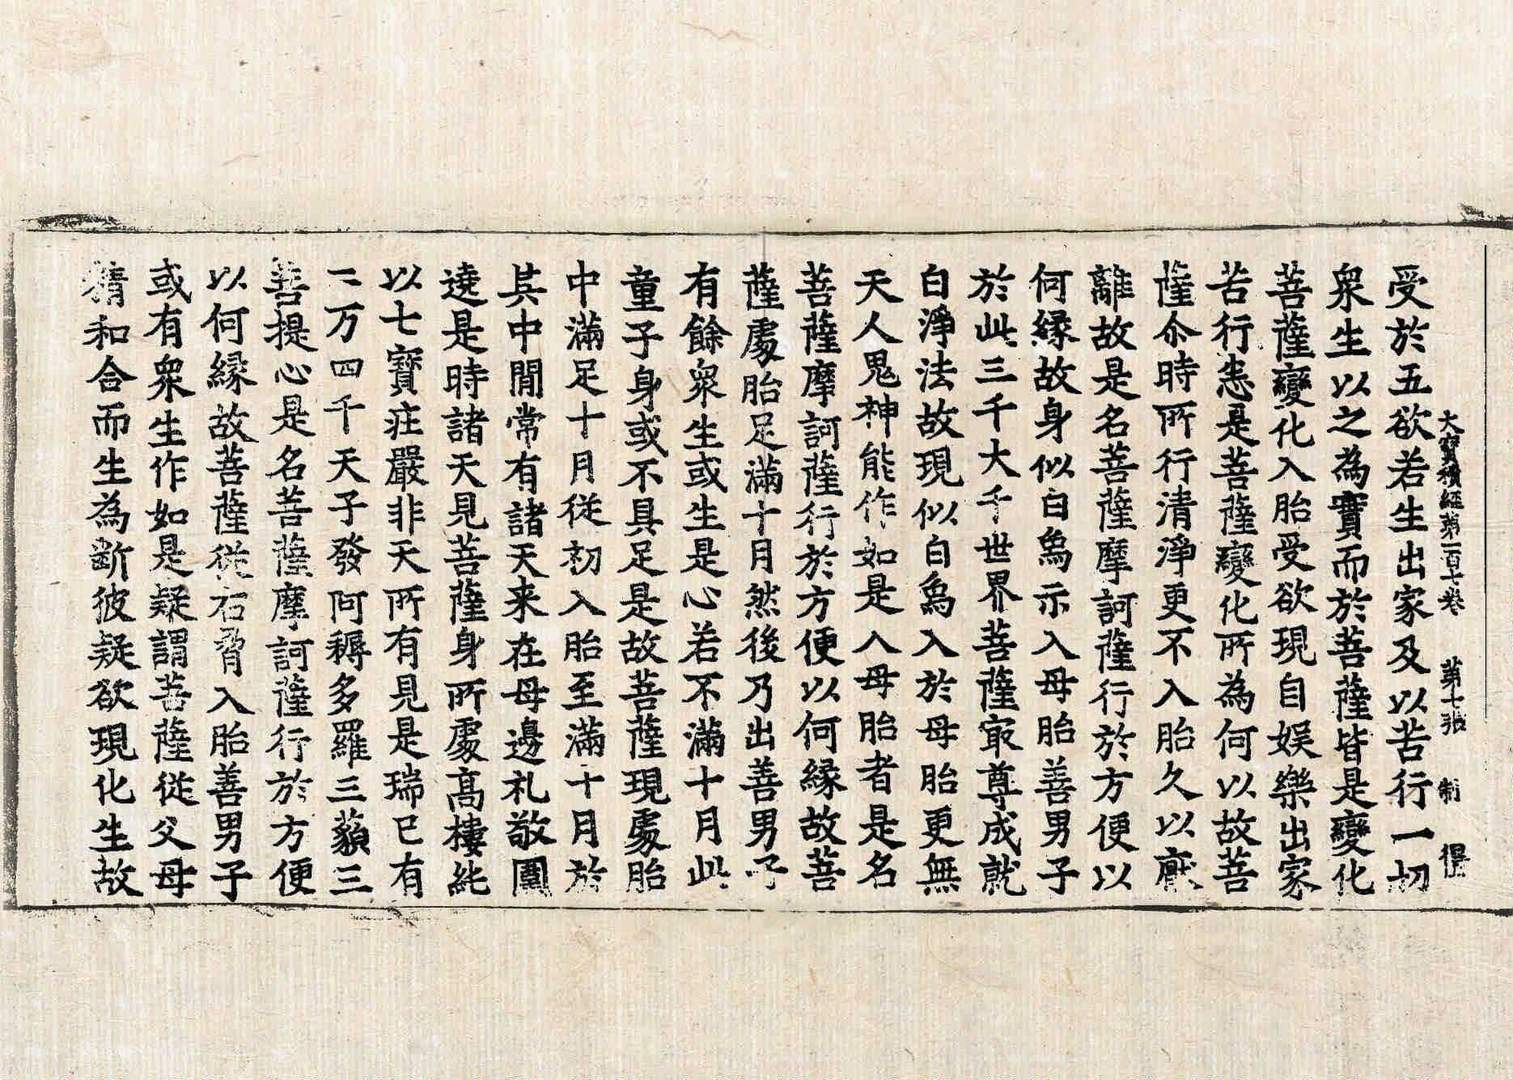 大寶積經第一百七卷 第七張 制 得
受於五欲若生出家及以苦行一切
衆生以之為實而於菩薩皆是變化
菩薩變化入胎受欲現自娱樂出家
苦行悉是菩薩變化所為何以故菩
薩尒時所行清淨更不入胎久以猒
離故是名菩薩摩訶薩行於方便以
何縁故身似白鳥示入母胎善男子
於此三千大千世界菩薩冣尊成就
白淨法故現似白鳥入於母胎更無
天人鬼神能作如是入母胎者是名
菩薩摩訶薩行於方便以何縁故菩
薩處胎足滿十月然後乃出善男子
有餘衆生或生是心若不滿十月此
童子身或不具足是故菩薩現處胎
中滿足十月従初入胎至滿十月於
其中閒常有諸天来在母邊礼敬圍
遶是時諸天見菩薩身所處髙樓純
以七寶疰嚴非天所有見是瑞已有
二万四千天子發阿耨多羅三藐三
菩提心是名菩薩摩訶薩行於方便
以何縁故菩薩従右脅入胎善男子
或有衆生作如是疑謂菩薩従父母
精和合而生為斷彼疑欲現化生故